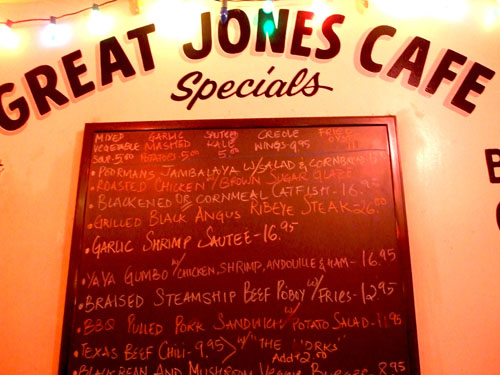 GREAT JONES CAFE
Specials
MIXED GARLIC SAUTEED CREOLE FRIED
VEGETABLE MASHED KALE WINGS-9.95
SOUP-5.00 POTATOES 5.00 5.00
• POORMANS JAMBALAYA W/SALAD & CORNBREAD
• ROASTED CHICKEN W/BROWN SUGAR GLAZE
• BLACKENED OR CORNMEAL CATFISH-16.95
• GRILLED BLACK ANGUS RIBEYE STEAK-26.00
• GARLIC SHRIMP SAUTEÉ-16.95
• YAYA GUMBO w/ CHICKEN, SHRIMP, ANDOUILLE & HAM-16.95
• BRAISED STEAMSHIP BEEF POBOY w/ FRIES-12.95
• BBQ PULLED PORK SANDWICH w/ POTATO SALAD-11.95
• TEXAS BEEF CHILI-9.95 > w/ "THE WORKS"
Add + 2.00
• BLACKBEAN AND MUSHROOM VEGGIE BURGER 8.95